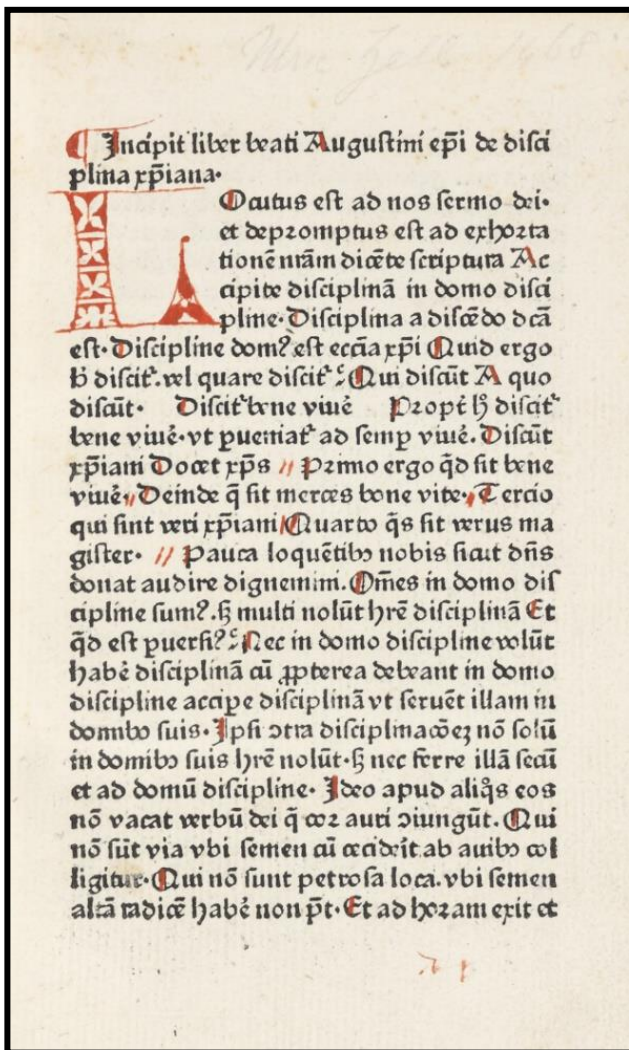 Ulric Zell 1468
¶ Incipit liber beati Augustini ep̄i de disci
plina xp̄iana·
LOcutus est ad nos sermo dei·
et depromptus est ad exhorta
tionē nr̄am dicēte scriptura Ac
cipite disciplinā in domo disci
pline·Disciplina a discēdo dc̄a
est·Discipline domꝰ est ecc̄ia xp̄i Quid ergo
h̄ discit᷑·vel quare discit᷑ Qui discūt A quo
discūt· Discit᷑ bene viuē Propt̄ h̄ discit᷑
bene viuē·vt ꝑueniat᷑ ad semꝑ viuē.Discūt
xp̄iani Docet xp̄s // Primo ergo qd̄ sit bene
viuē·// Deinde q̄ sit merces bone vite·// Tercio
qui sint veri xp̄iani // Quarto q̄s sit verus ma
gister· // Pauca loquētibꝫ nobis sicut dn̄s
donat audire dignemini.Om̄es in domo dis
cipline sumꝰ.ꝫ multi nolūt hr̄e disciplinā Et
qd̄ est ꝑuersiꝰ Nec in domo discipline volūt
habē disciplinā cū ꝓpterea debeant in domo
discipline acciꝑe disciplinā vt seruēt illam in
domibꝫ suis·Ipsi ꝯtra disciplinā oēꝫ nō solū
in domibꝫ suis hr̄e nolūt·ꝫ nec ferre illā secū
et ad domū discipline· Ideo apud aliq̄s eos
nō vacat verbū dei q̄ cor auri ꝯiungūt.Qui
nō sūt via vbi semen cū ceciderit ab auibꝫ col
ligitur·Qui nō sunt petrosa loca.vbi semen
altā radicē habē non p̄t·Et ad horam exit et